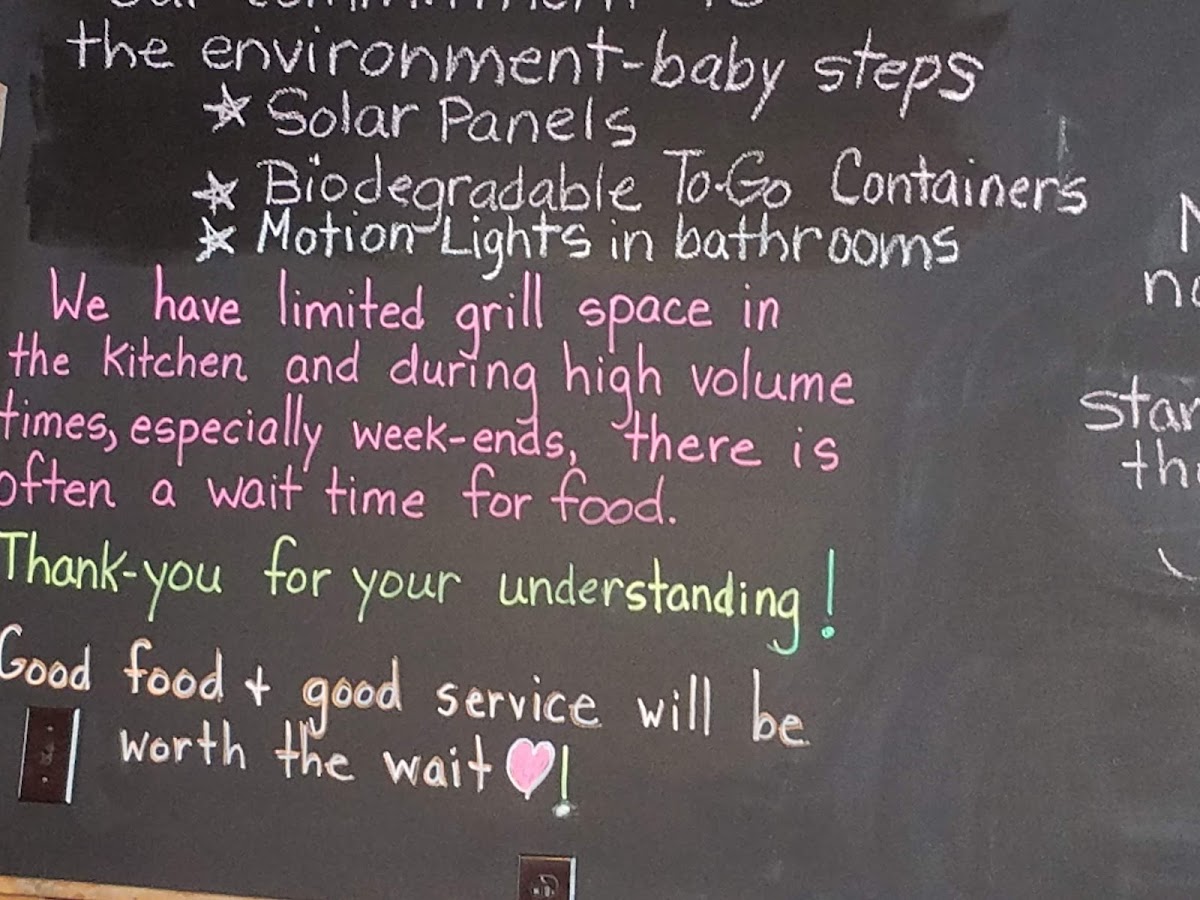 our commitment to
the environment-baby steps
☆ Solar Panels
☆ Biodegradable To-Go Containers
☆ Motion Lights in bathrooms
We have limited grill space in
the Kitchen and during high volume
times, especially week-ends, there is
often a wait time for food.
Thank-you for your understanding!
Good food + good service will be
worth the wait ♥!